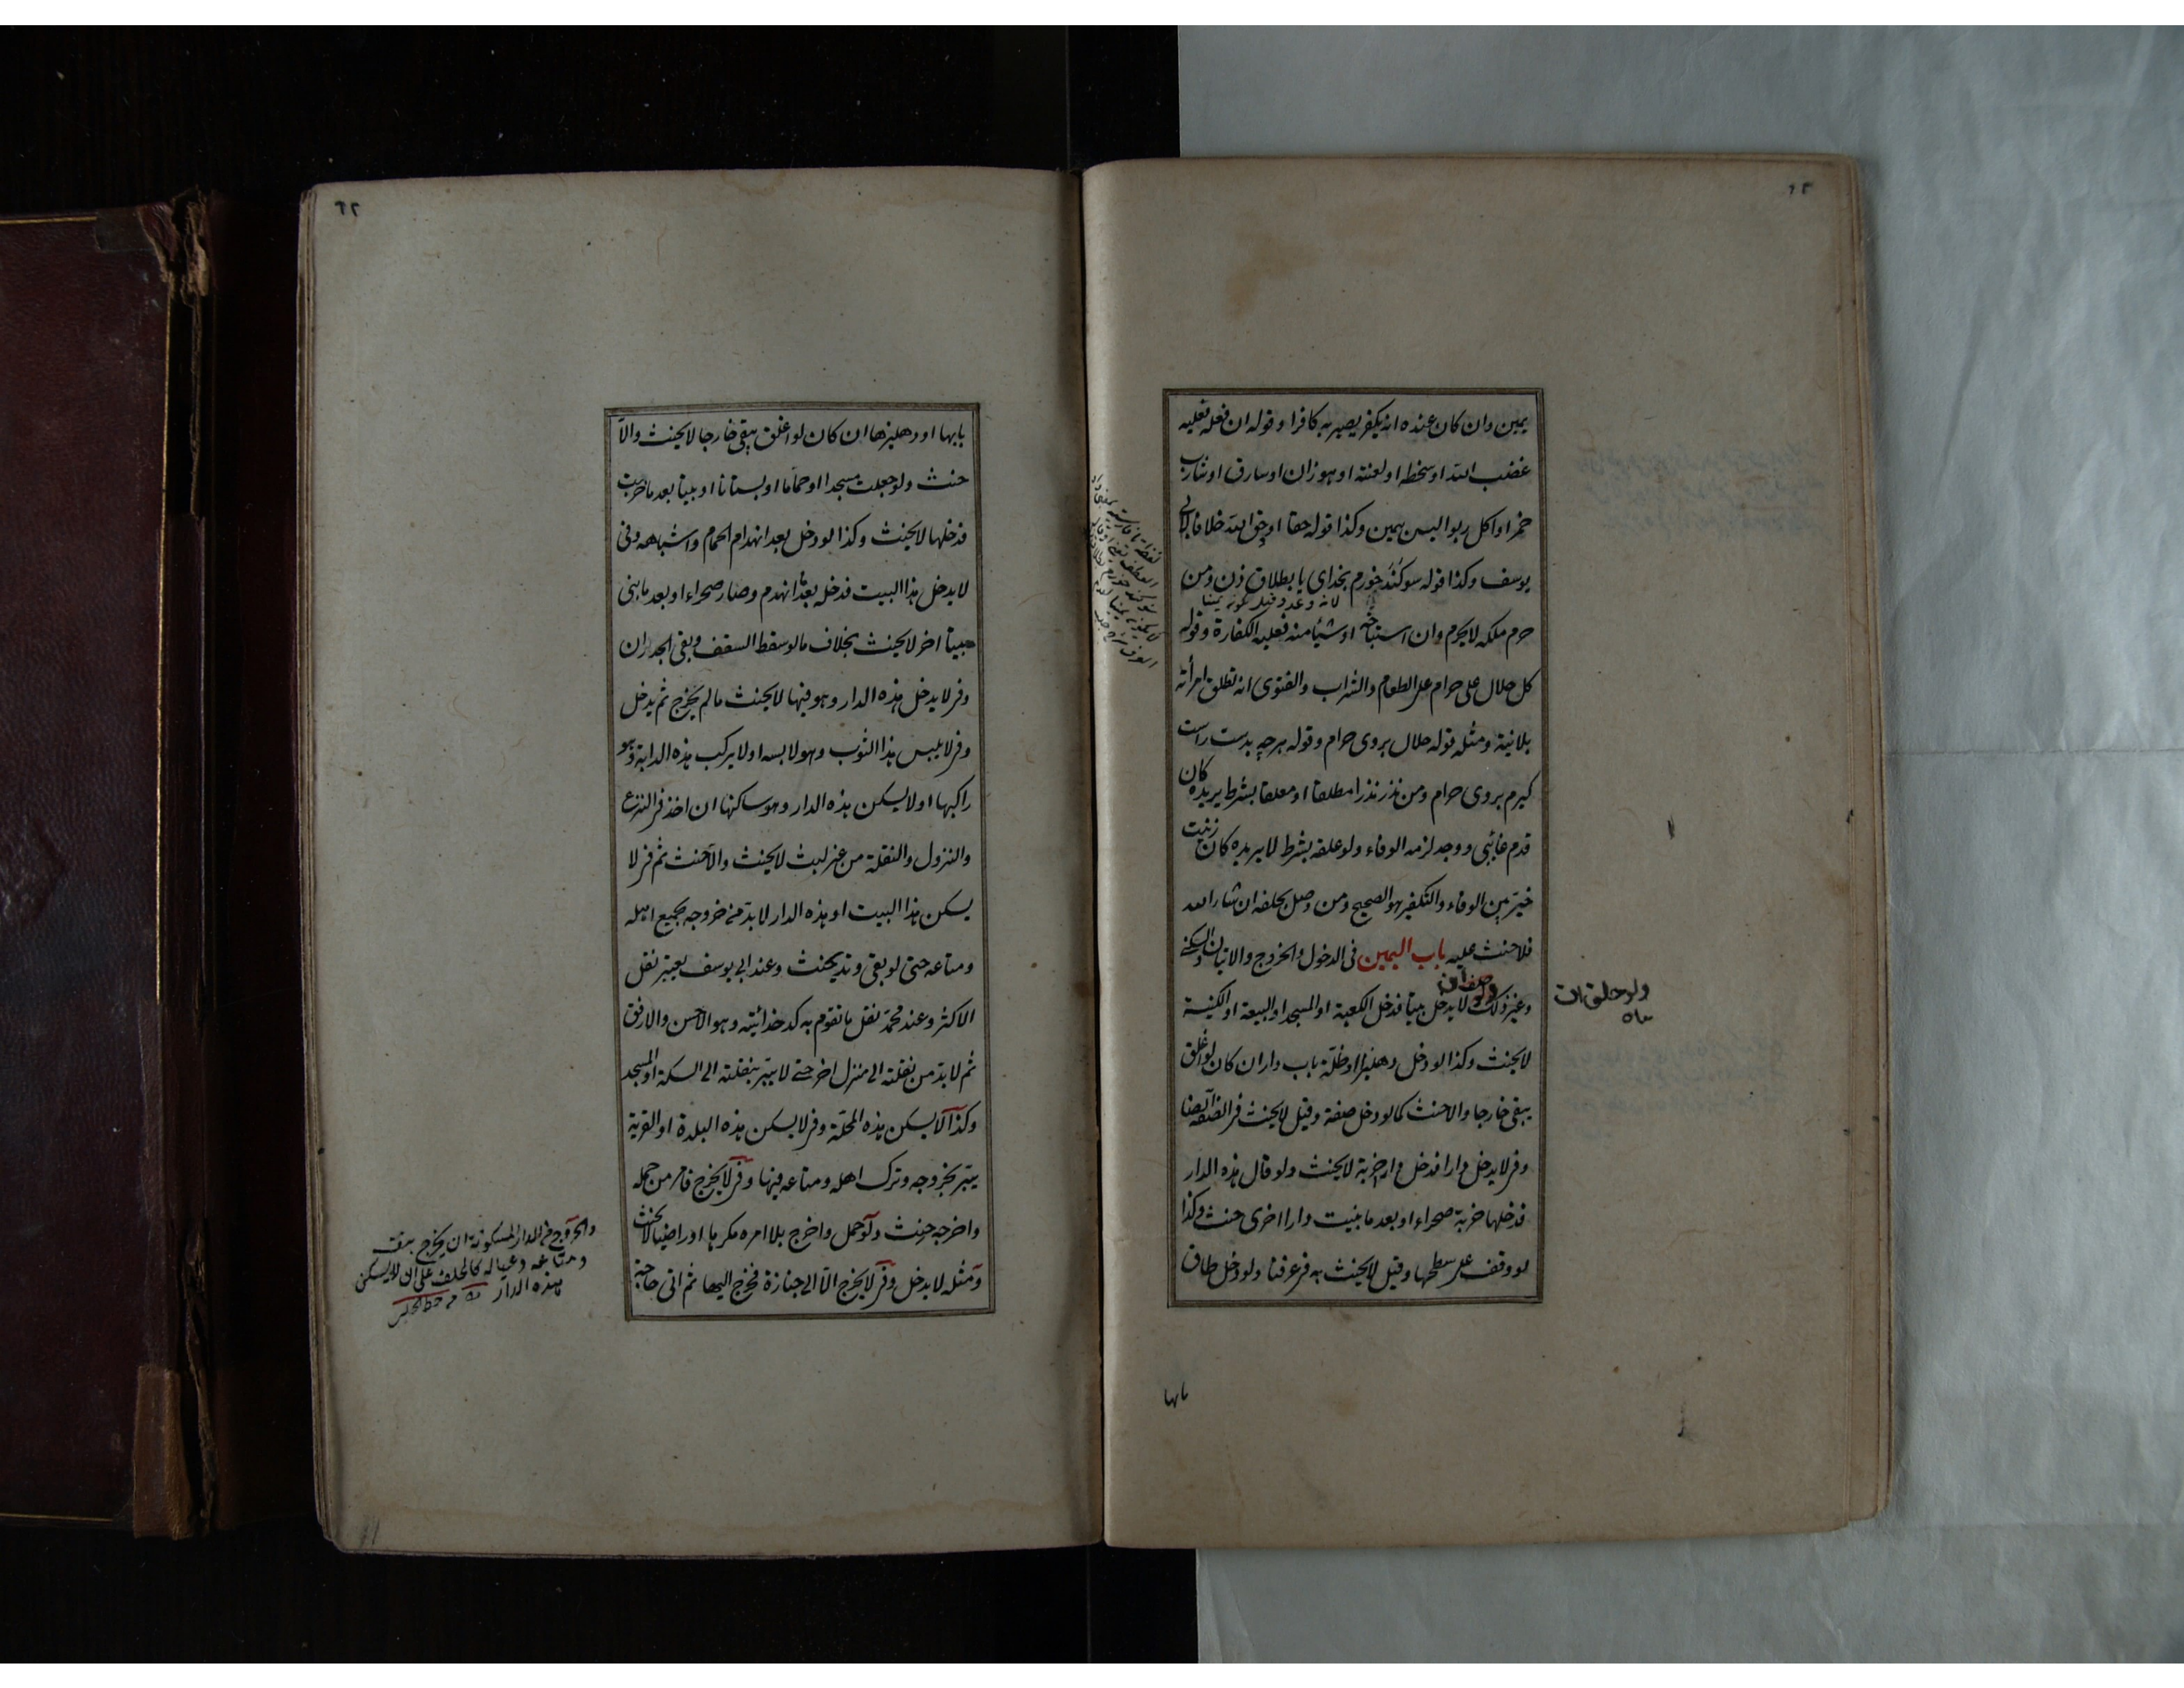 يمين وان كان عنده انه يكفر يصير به كافرا وقوله ان فعله فعليه
غضب الله او سخطه او لعنته او هو زان او سارق او شارب
خمر او اكل ربوا ليس بيمين وكذا قوله حقا او حق الله خلافا لابى
يوسف وكذا قوله سوكند خورم بخداى يا بطلاق زن ومن
حرم ملكه لا يحرم وان استباحه او شيئا منه فعليه الكفارة وقوله
كل حلال على حرام على الطعام والشراب والفتوى انه تطلق امرأته
بلا نية ومثله قوله حلال بروى حرام وقوله هرچه بدست راست
كيرم بروى حرام ومن نذر نذرا مطلقا او معلقا بشرط يريده كان
قدم غائبى ووجد لزمه الوفاء ولو علقه بشرط لا يريده كان زنيت
خير بين الوفاء والتكفير هو الصحيح ومن وصل بحلفه ان شاء الله
فلا حنث عليه باب اليمين فى الدخول والخروج والاتيان والسكنى
وغير ذلك لا يدخل بيتا فدخل الكعبة او المسجد او البيعة او الكنيسة
لا يحنث وكذا لو دخل دهليزا او ظلة باب دار ان كان لو اغلق
يبقى خارجا والا حنث كما لو دخل صفة وقيل لا يحنث فى الصفة ايضا
وفى لا يدخل دارا فدخل دار خربة لا يحنث ولو قال هذه الدار
فدخلها خربة صحراء او بعد ما بنيت دارا اخرى حنث وكذا
لو وقف على سطحها وقيل لا يحنث به فى عرفنا ولو دخل طاق
بابها
ولو حلف ان
بابها او دهليزها ان كان لو اغلق يبقى خارجا لا يحنث والا
حنث ولو جعلت مسجدا او حماما او بستانا او بيتا بعد ما خربت
فدخلها لا يحنث وكذا لو دخل بعد انهدام الحمام واشباهه وفى
لا يدخل هذا البيت فدخله بعد ما انهدم وصار صحراء او بعد ما بنى
بيتا اخر لا يحنث بخلاف ما لو سقط السقف وبقى الجدران
وفى لا يدخل هذه الدار وهو فيها لا يحنث ما لم يخرج ثم يدخل
وفى لا يلبس هذا الثوب وهو لابسه او لا يركب هذه الدابة وهو
راكبها او لا يسكن هذه الدار وهو ساكنها ان اخذ فى النزع
والنزول والنقلة من غير لبث لا يحنث والا حنث ثم فى لا
يسكن هذا البيت او هذه الدار لا بد من خروجه بجميع اهله
ومتاعه حتى لو بقى وتد يحنث وعند ابى يوسف يعتبر نقل
الاكثر وعند محمد نقل ما تقوم به كدخدائيته وهو الاحسن والارفق
ثم لا بد من نقلته الى منزل اخر حتى لا يبر بنقلته الى السكة او المسجد
وكذا لا يسكن هذه المحلة وفى لا يسكن هذه البلدة او القرية
يبر بخروجه وترك اهله ومتاعه فيها وفى لا يخرج فامر من حمله
واخرجه حنث ولو حمل واخرج بلا امره مكرها او راضيا لا يحنث
ومثله لا يدخل وفى لا يخرج الا الى جنازة فخرج اليها ثم اتى حاجة
والخروج من الدار المسكونة ان يخرج بنفسه
ومتاعه وعياله كما لو حلف على ان لا يسكن
هذه الدار